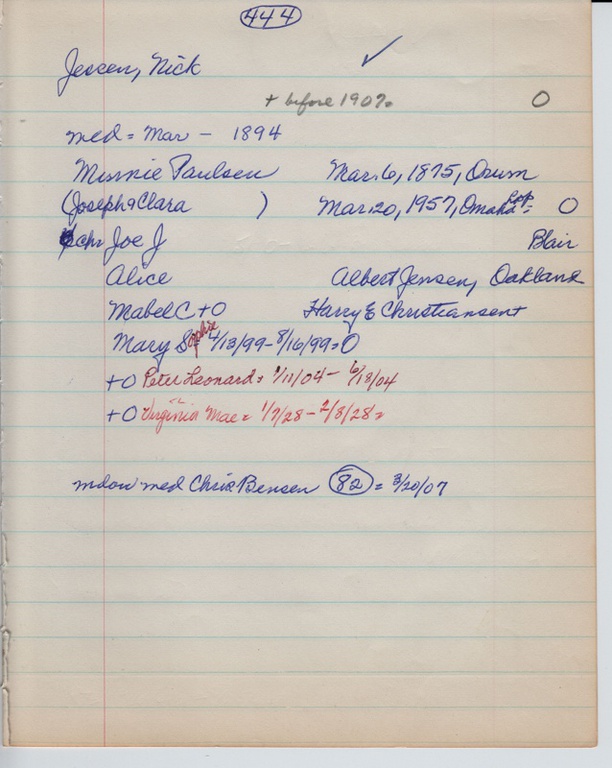 444
Jessen, Nick ✓
+ before 1907. O
med = Mar - 1894
Minnie Paulsen Mar. 6, 1875, Orum
(Joseph & Clara ) Mar. 20, 1957, Omaha O
chr Joe J Blair
Alice Albert Jensen, Oakland
Mabel C + O Harry E Christiansen +
Mary Sophie 4/13/99 - 8/16/99 = O
+ O Peter Leonard = 1/11/04 - 6/18/04
+ O Virginia Mae = 1/7/28 - 2/8/28 =
med Chris Bensen 82 = 3/20/07